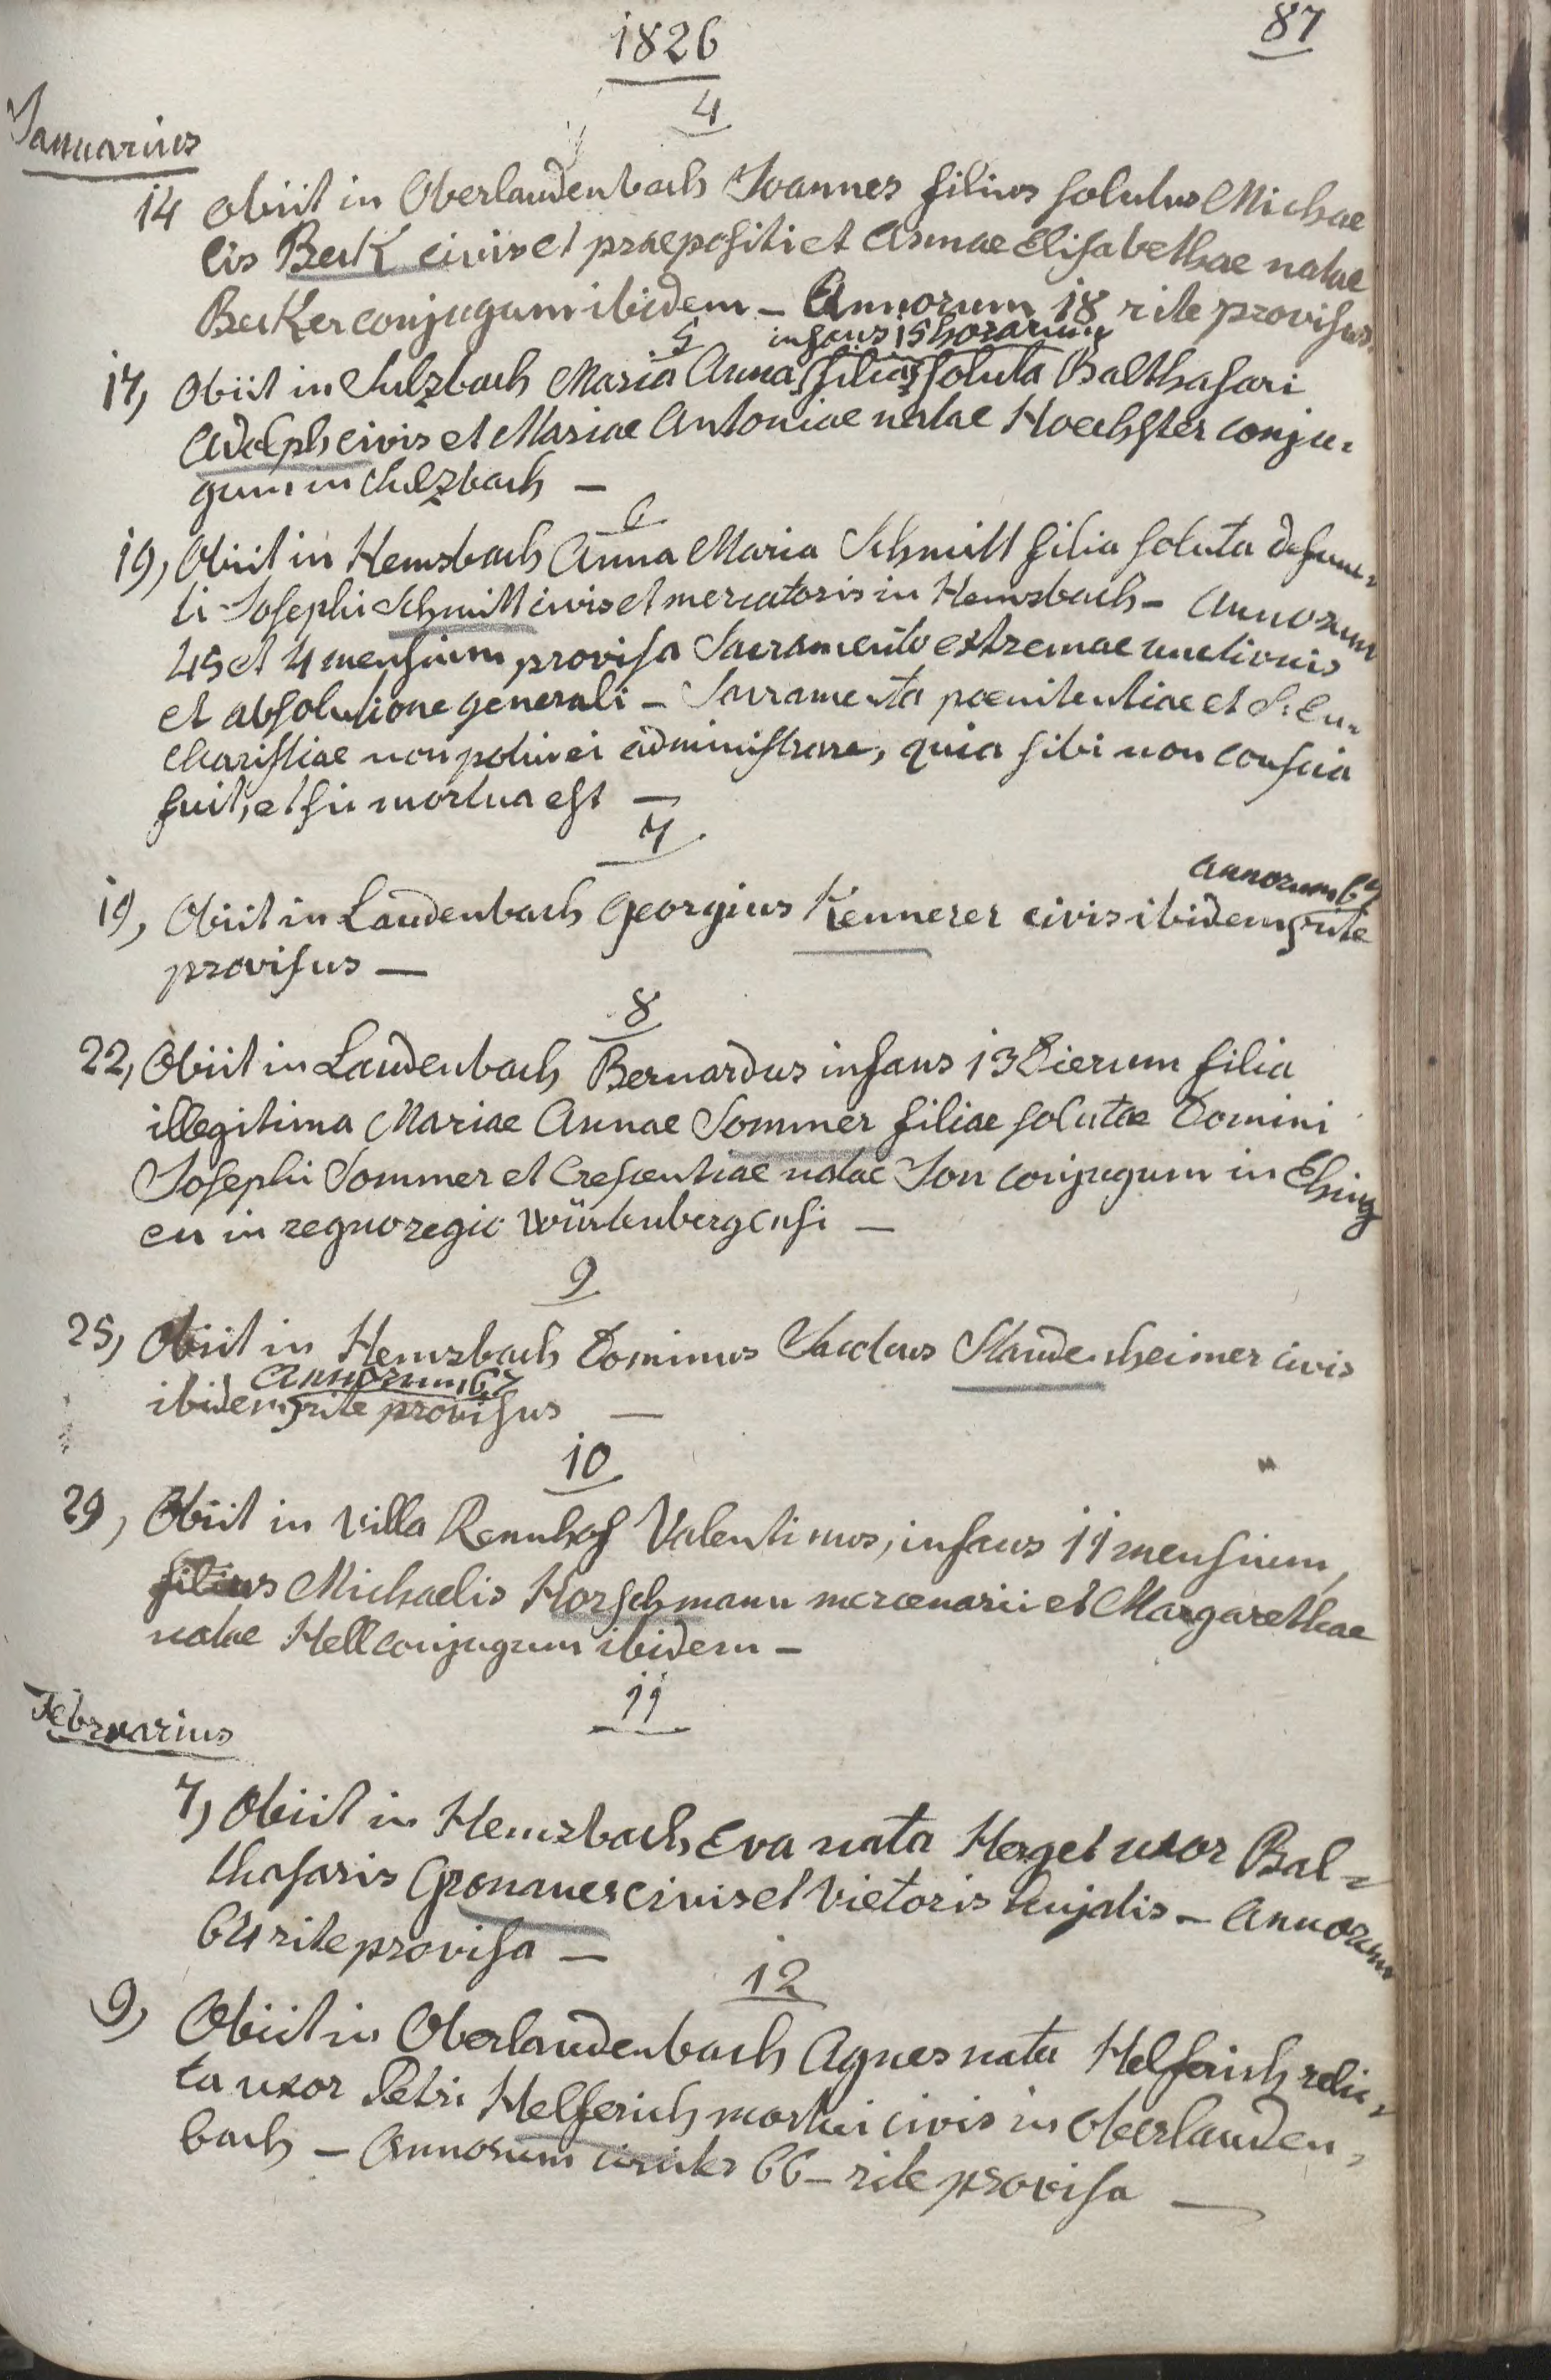 1826
87
4
Januarius
14 obiit in Oberlaudenbach Joannes filius solutus Michae
lis Beck civis et praepositi et Annae Elisabethae natae
Becker conjugum ibidem - Annorum 18 rite provisus.
5
infans 15 horarum
17, Obiit in Sulzbach Maria Anna filia soluta Balthasari
Adolph civis et Mariae Antoniae natae Hoechster conju-
gum in Sulzbach -
6
19, Obiit in Hemsbach Anna Maria Schmitt filia soluta defunc-
ti Josephi Schmitt civis et mercatoris in Hemsbach - Annorum
45 et 4 mensium provisa Sacramento extremae unctionis
et absolutione generali - Sacramenta poenitentiae et S: Eu-
charistiae non potui ei administrare, quia sibi non conscia
fuit, et sic mortua est -
7
annorum
19, Obiit in Laudenbach Georgius Kennerer civis ibidem rite
provisus -
8
22, Obiit in Laudenbach Bernardus infans 13 dierum filia
illegitima Mariae Annae Sommer filiae solutae Domini
Josephi Sommer et Crescentiae natae Jon conjugum in Ehing
en in regno regio Würtenbergensi -
9
25, Obiit in Hemsbach Dominus Staudenheimer civis
Annorum 67
ibidem rite provisus -
10
29, Obiit in villa Rennhof Valentinus, infans 11 mensium,
filius Michaelis Horschmann mercenarii et Margarethae
natae Hell conjugum ibidem -
11
Februarius
7, Obiit in Hemsbach Eva nata Herget uxor Bal-
thasaris Gronauer civis et Vietoris hujatis - Annorum
64 rite provisa -
12
9, Obiit in Oberlaudenbach Agnes nata Helferich relic-
ta uxor Petri Helferich mortui civis in Oberlauden-
bach - Annorum circiter 66 - rite provisa -